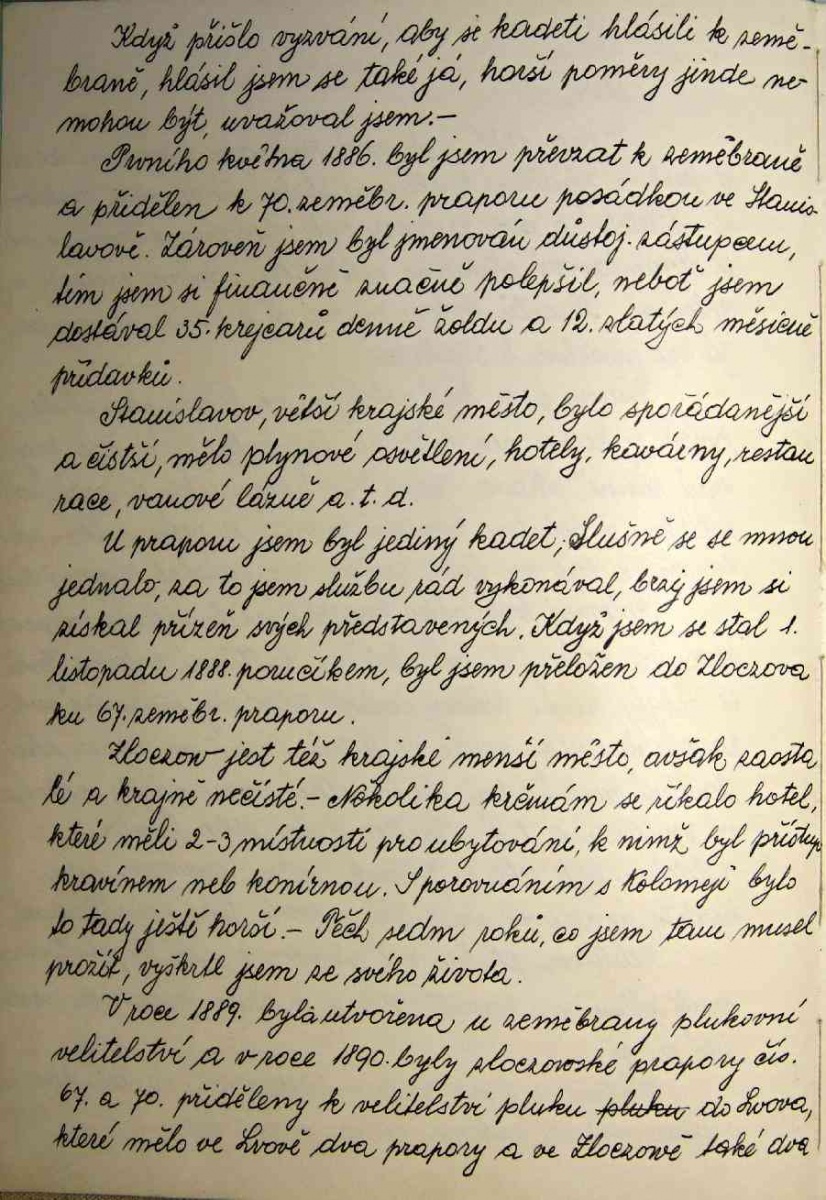 Když přišlo vyzvání, aby se kadeti hlásili k země-
braně, hlásil jsem se také já, horší poměry jinde ne-
mohou být, uvažoval jsem.-
Prvního května 1886. byl jsem převzat k zeměbraně
a přidělen k 70. zeměbr. praporu posádkou ve Stanis-
lavově. Zároveň jsem byl jmenován důstoj. zástupcem,
tím jsem si finančně značně polepšil, neboť jsem
dostával 35. krejcarů denně žoldu a 12. zlatých měsíčně
přídavků.
Stanislavov, větší krajské město, bylo spořádanější
a čistší, mělo plynové osvětlení, hotely, kavárny, restau
race, vanové lázně a. t. d.
U praporu jsem byl jediný kadet; Slušně se se mnou
jednalo, za to jsem službu rád vykonával, brzy jsem si
získal přízeň svých představených. Když jsem se stal 1.
listopadu 1888. poručíkem, byl jsem přeložen do Zloczova
ku 67. zeměbr. praporu.
Zloczow jest též krajské menší město, avšak zaosta
lé a krajně nečisté.- Několika krčmám se říkalo hotel,
které měli 2-3 místností pro ubytování, k nimž byl přístup
kravínem neb konírnou. S porovnáním s Kolomejí bylo
to tady ještě horší.- Těch sedm roků, co jsem tam musel
prožít, vyškrtl jsem ze svého života.
V roce 1889. byla utvořena u zeměbrany plukovní
velitelství a v roce 1890. byly zloczowské prapory čís.
67. a 70. přiděleny k velitelství pluku pluku do Lvova,
které mělo ve Lvově dva prapory a ve Zloczowě také dva